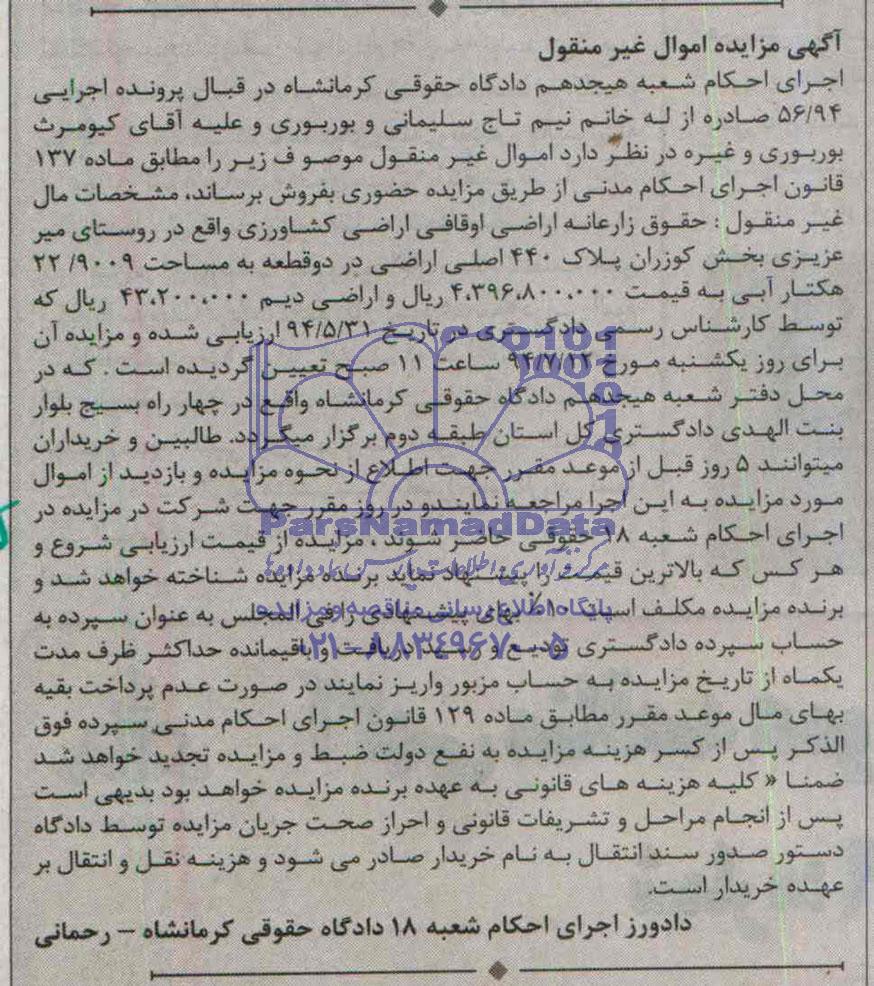 آگهی مزایده اموال غیر منقول
اجرای احکام شعبه هیجدهم دادگاه حقوقی کرمانشاه در قبال پرونده اجرایی
۵۶/۹۴ صادره از له خانم نیم تاج سلیمانی و بوربوری و علیه آقای کیومرث
بوربوری و غیره در نظر دارد اموال غیر منقول موصو ف زیر را مطابق ماده ۱۳۷
قانون اجرای احکام مدنی از طریق مزایده حضوری بفروش برساند، مشخصات مال
غیر منقول : حقوق زارعانه اراضی اوقافی اراضی کشاورزی واقع در روستای میر
عزیزی بخش کوزران پلاک ۴۴۰ اصلی اراضی در دوقطعه به مساحت ۹۰۰۹/ ۲۲
هکتار آبی به قیمت ۴،۳۹۶،۸۰۰،۰۰۰ ریال و اراضی دیم ۴۳،۲۰۰،۰۰۰ ریال که
توسط کارشناس رسمی دادگستری در تاریخ ۹۴/۵/۳۱ ارزیابی شده و مزایده آن
برای روز یکشنبه مورخ ۹۴/۷/۱۲ ساعت ۱۱ صبح تعیین گردیده است . که در
محل دفتر شعبه هیجدهم دادگاه حقوقی کرمانشاه واقع در چهار راه بسیج بلوار
بنت الهدی دادگستری کل استان طبقه دوم برگزار میگردد. طالبین و خریداران
میتوانند ۵ روز قبل از موعد مقرر جهت اطلاع از نحوه مزایده و بازدید از اموال
مورد مزایده به این اجرا مراجعه نمایندو در روز مقرر جهت شرکت در مزایده در
ParsNamadData
اجرای احکام شعبه ۱۸ حقوقی حاضر شوند ، مزایده از قیمت ارزیابی شروع و
هر کس که بالاترین قیمت را پیشنهاد نماید برنده مزایده شناخته خواهد شد و
پایگاه اطلاع رسانی مناقصه و مزایده
برنده مزایده مکلف است ۱۰٪ بهای پیشنهادی را فی المجلس به عنوان سپرده به
۰۲۱-۸۸۳۴۹۶۷۰-۵
حساب سپرده دادگستری تودیع و رسید دریافت و باقیمانده حداکثر ظرف مدت
یکماه از تاریخ مزایده به حساب مزبور واریز نمایند در صورت عدم پرداخت بقیه
بهای مال موعد مقرر مطابق ماده ۱۲۹ قانون اجرای احکام مدنی سپرده فوق
الذکر پس از کسر هزینه مزایده به نفع دولت ضبط و مزایده تجدید خواهد شد
ضمنا « کلیه هزینه های قانونی به عهده برنده مزایده خواهد بود بدیهی است
پس از انجام مراحل و تشریفات قانونی و احراز صحت جریان مزایده توسط دادگاه
دستور صدور سند انتقال به نام خریدار صادر می شود و هزینه نقل و انتقال بر
عهده خریدار است.
دادورز اجرای احکام شعبه ۱۸ دادگاه حقوقی کرمانشاه – رحمانی